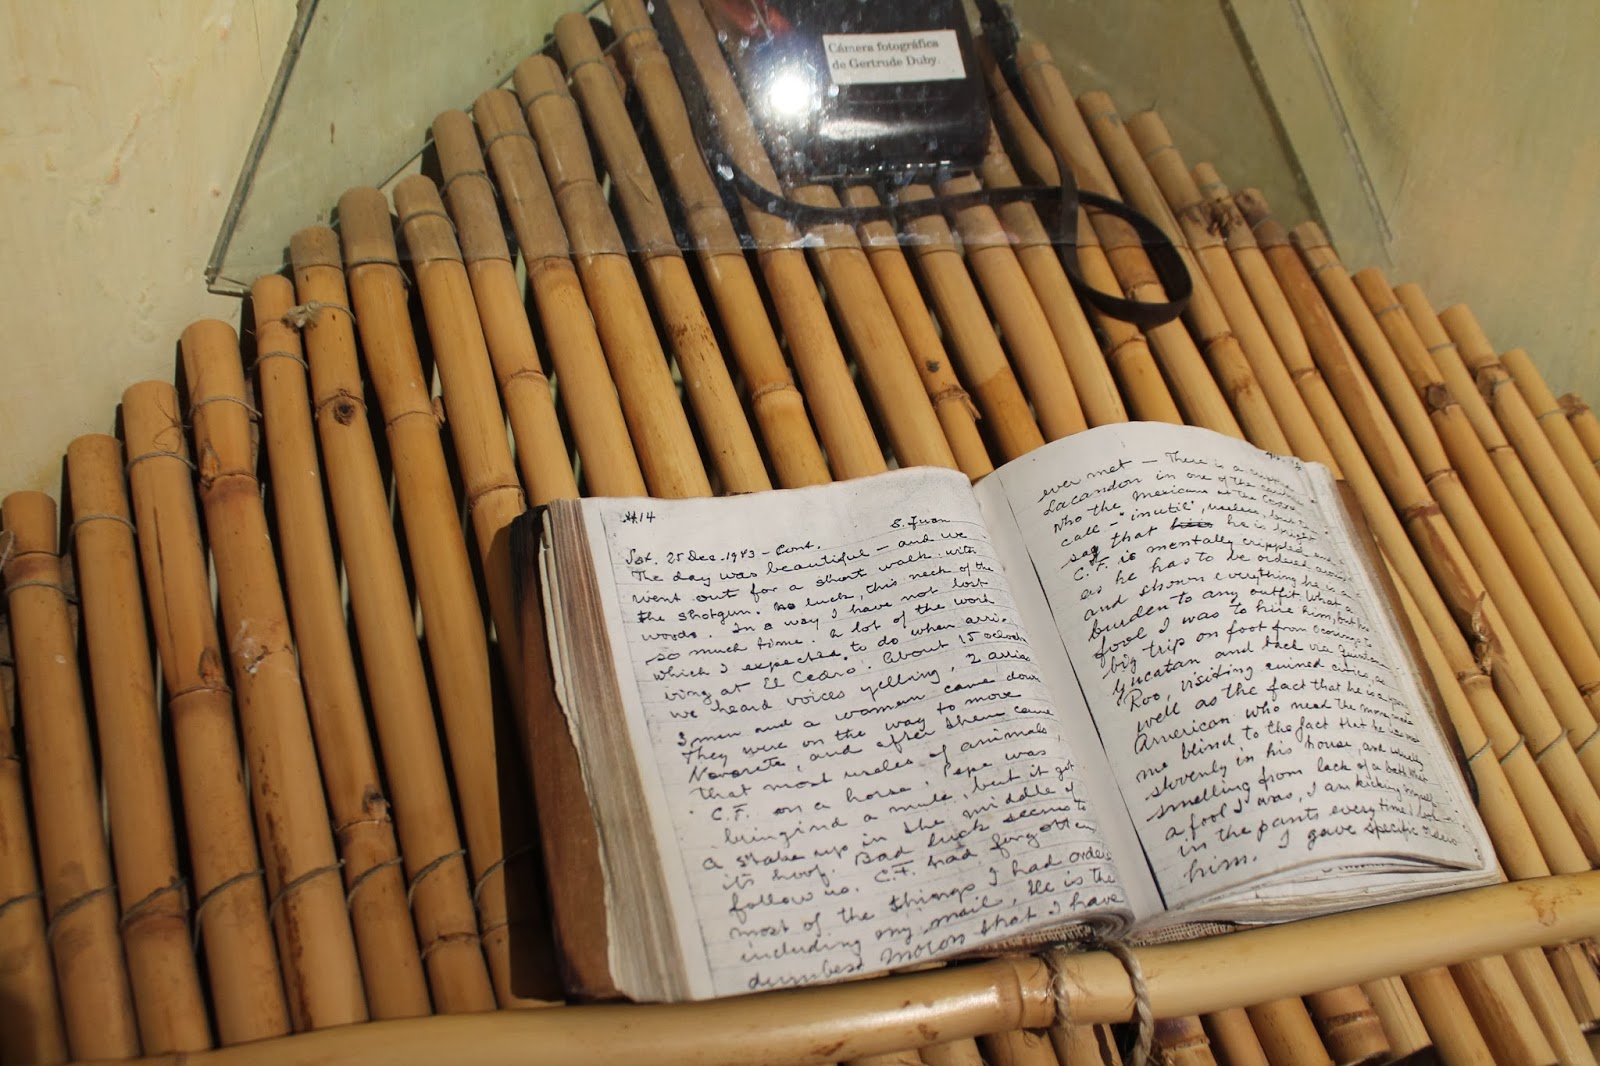 Cámera fotográfica
de Gertrude Duby
14
S. Juan
Sat. 25 Dec. 1943 - Cont.
The day was beautiful - and we
went out for a short walk with
the shotgun. No luck, this neck of the
woods. In a way I have not lost
so much time. A lot of the work
which I expected to do when arri-
iving at El Cedro. About 15 oclock
we heard voices yelling, 2
men and a woman came down
They were on the way to move
and after them came
that most useless of animals,
C.F. on a horse. Pepe was
bringind a mule, but it got
a stake up in the middle of
its hoof. Bad luck seems to
follow us. C.F. had forgotten
most of the things I had ordered
including my mail. He is the
dumbest moron that I have
ever met - There is a
Lacandon in one of the
who the Mexicans at the
call - "inutil", useless, but
say that he is bright
C.F. is mentally crippled and
as he has to be ordered around
and shown everything he is a
burden to any outfit. What a
fool I was to hire him, but his
big trip on foot from
Yucatan and back via Quintana
Roo, visiting ruined cities, as
well as the fact that he is a
American who need the money made
me blind to the fact that he is
slovenly in his house, and usually
smelling from lack of a bath. What
a fool I was, I am kicking myself
in the pants everytime I look
him. I gave specific orders